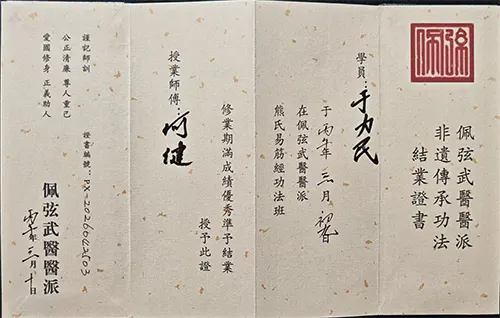 佩弦
佩弦武醫醫派
非遺傳承功法
結業證書
學員:于力民
于丙午年三月初
在佩弦武醫醫派
熊氏易筋經功法班
修業期滿成績優秀準予結業
授予此證
授業師傅:何健
謹記師訓
公正清廉 尊人重己
愛國修身 正義助人
證書編號:PX-2026042503
佩弦武醫醫派
丙午年三月十日